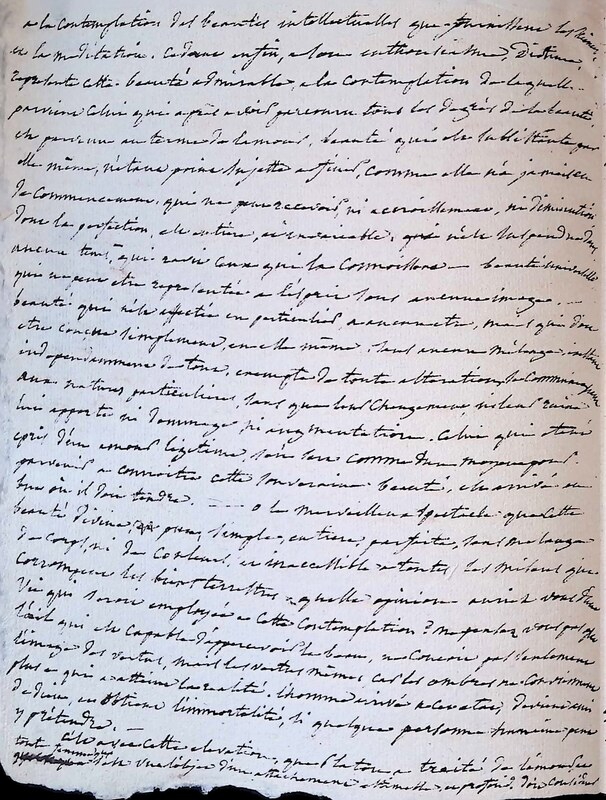 a la contemplation des beautés intellectuelles que fournissent les sciences
et la méditation. Cedant enfin, a son enthousiasme, Diotime,
represente cette beauté admirable, a la contemplation de laquelle
parvient celui qui après avoir parcouru tous les degrés de la beauté
est parvenu au terme de l'amour, beauté qui est subsistante par
elle même, n'etant point sujette a finir, comme elle n'a jamais eu
de commencement, qui ne peut recevoir, ni accroissement, ni diminution
dont la perfection, est entiere, et invariable, qui n'est suspendue dans
aucun tems, qui ravit ceux qui la connoissent — beauté universelle
qui ne peut etre representée a l'esprit sous aucune image. —
beauté qui n'est affectée en particulier, a aucun etre, mais qui doit
etre conçue simplement, en elle même, sans aucun mélange, existant
independamment de tout, exempte de toute alteration, se communiquant
aux natures particulieres, sans que leur changement, ni leur ruine
lui apporte ni dommage, ni augmentation. Celui qui etant
epris d'un amour legitime, s'en sert comme d'un moyen pour
parvenir a connoitre cette souveraine beauté, est arrivé au
but où il doit tendre. — o le merveilleux spectacle que cette
beauté divine pure, simple, entiere, parfaite, sans mélange
de corps, ni de couleur, et inaccessible a toutes les miseres que
corrompent les biens terrestres, quelle opinion auriez vous d'une
vie qui seroit employée a cette contemplation? ne pensez vous pas que
l'œil qui est capable d'appercevoir le beau, ne conçoit pas seulement
l'image des vertus, mais les vertus mêmes, car les ombres ne conviennent
plus a qui a atteint la realité, l'homme arrivé a cet etat, devient ami
de dieu, et obtient l'immortalité, si quelque personne humaine peut
y prétendre. —
C'est avec cette elevation, que Platon a traité de l'amour
tout d'une attachement et profond, doit